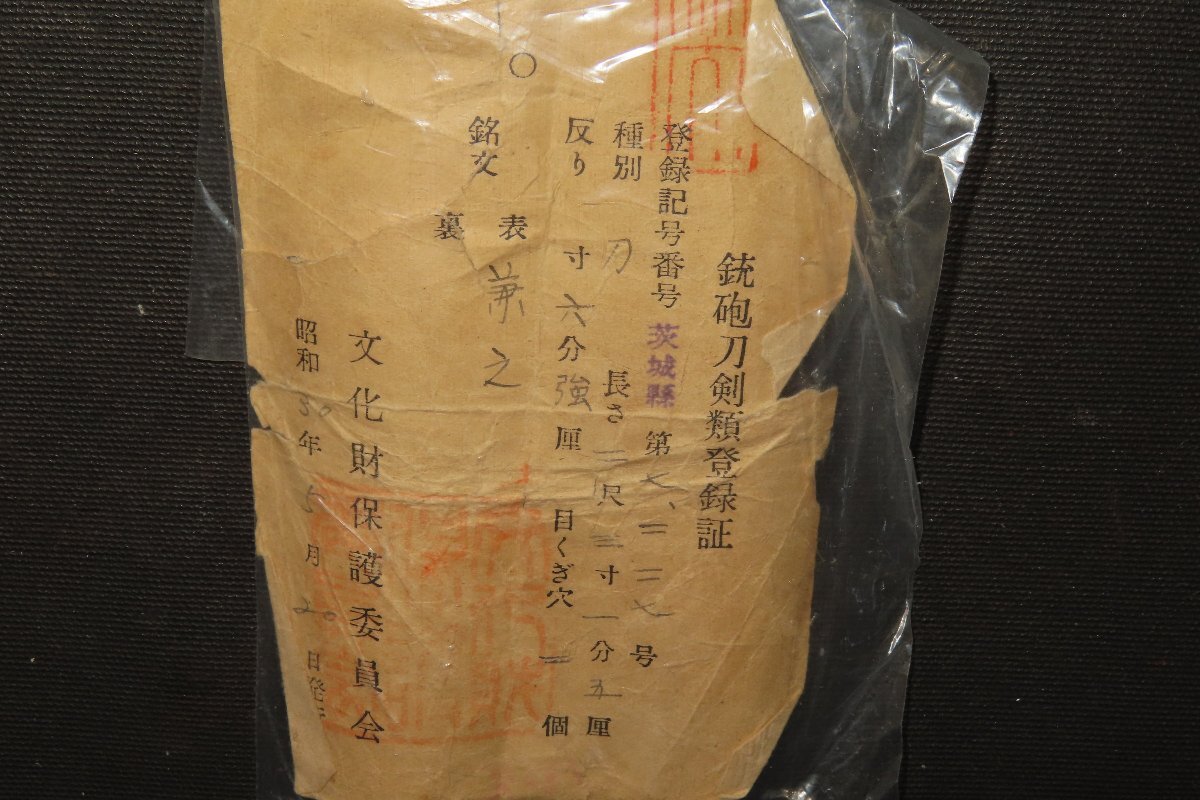 銃砲刀剣類登録証
登録記号番号 茨城縣 第七、二二七号
種別 刀 長さ 二尺三寸一分五厘
反り 寸六分強厘 目くぎ穴 二個
銘文 表 兼之
裏
文化財保護委員会
昭和30年5月20日発行